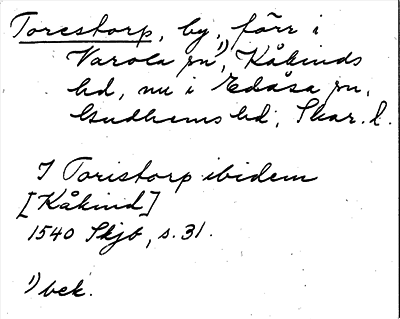 Torestorp, by, förr i
Varola sn¹⁾, Kåkinds
hd, nu i Edåsa sn,
Gudhems hd, Skar. l.
I Toristorp ibidem
[Kåkind]
1540 Skjb, s. 31.
¹⁾ bek.